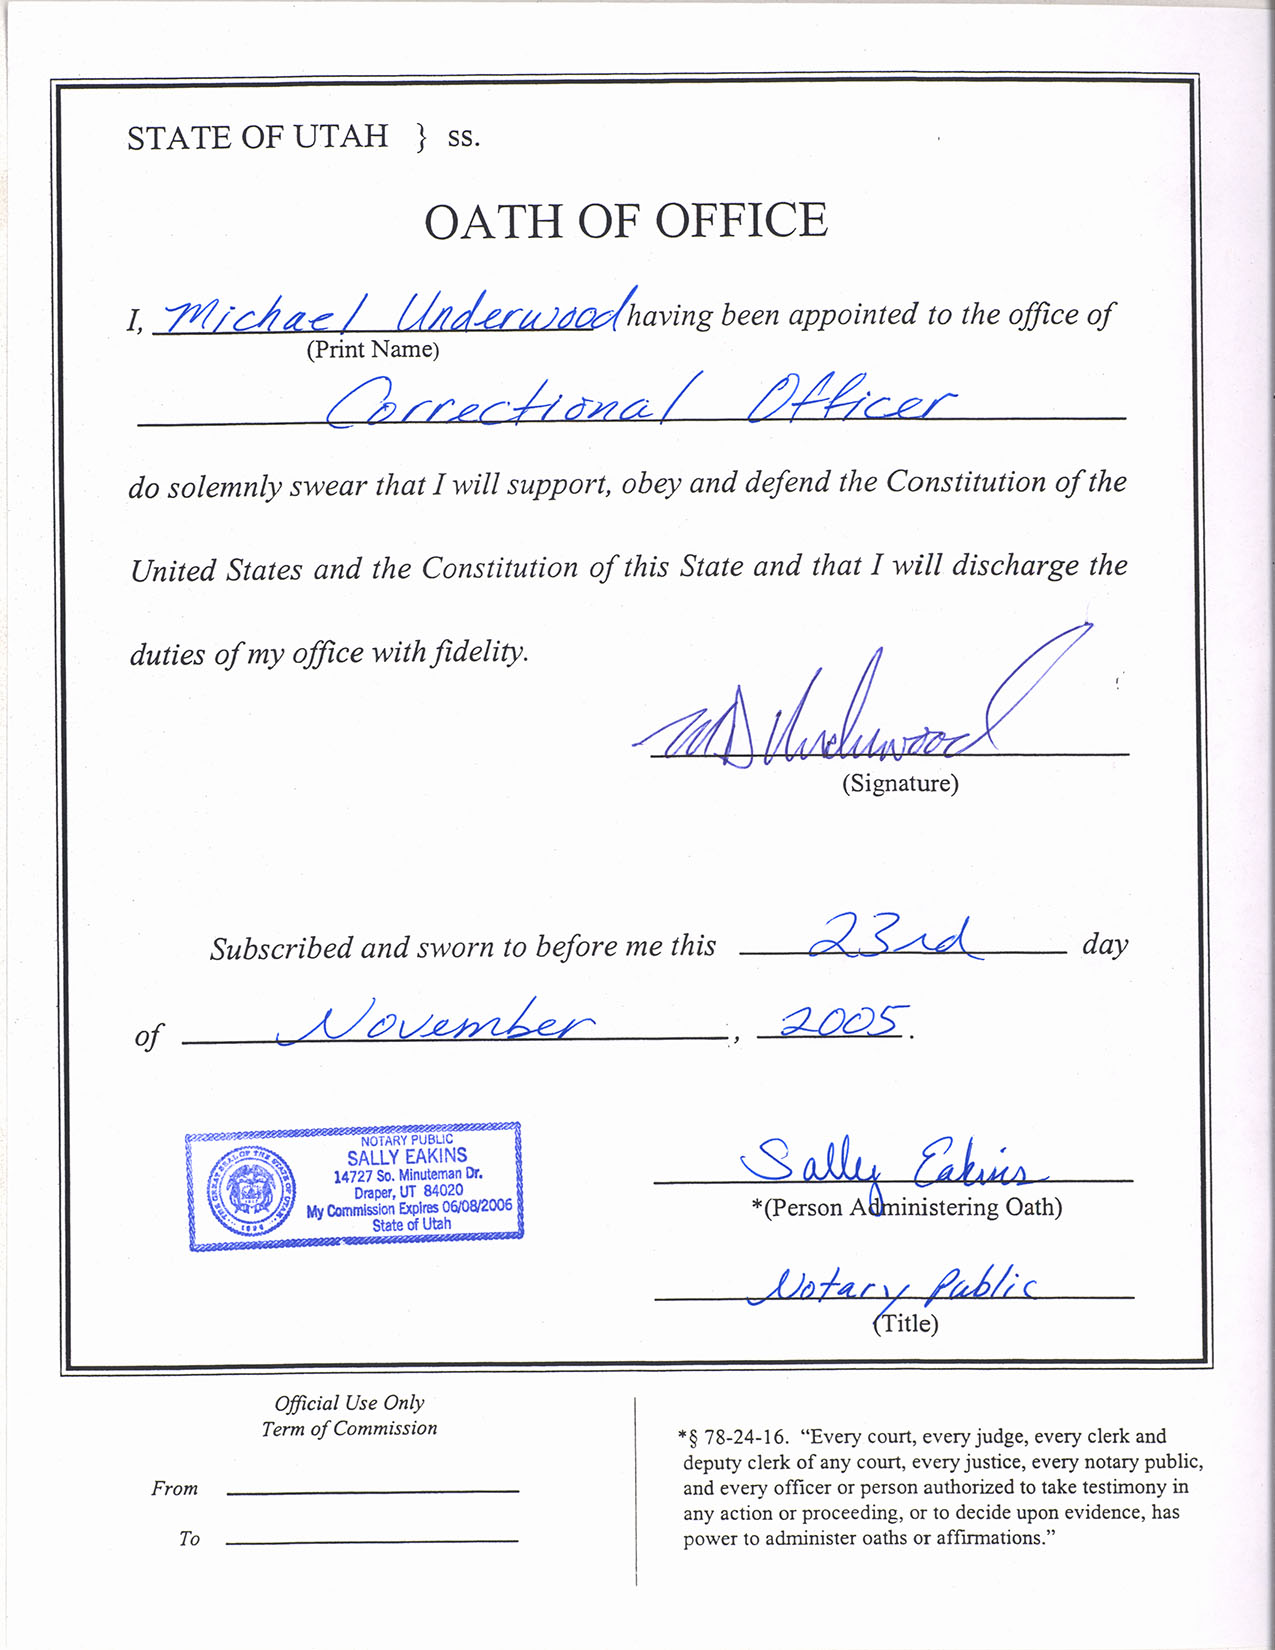 STATE OF UTAH } ss.
OATH OF OFFICE
I, Michael Underwood having been appointed to the office of
(Print Name)
Correctional Officer
do solemnly swear that I will support, obey and defend the Constitution of the
United States and the Constitution of this State and that I will discharge the
duties of my office with fidelity.
MD Underwood
(Signature)
Subscribed and sworn to before me this 23rd day
of November, 2005.
NOTARY PUBLIC
SALLY EAKINS
14727 So. Minuteman Dr.
Draper, UT 84020
My Commission Expires 06/08/2006
State of Utah
THE GREAT SEAL OF THE STATE OF UTAH
1896
Sally Eakins
*(Person Administering Oath)
Notary Public
(Title)
Official Use Only
Term of Commission
From
To
*§ 78-24-16. “Every court, every judge, every clerk and
deputy clerk of any court, every justice, every notary public,
and every officer or person authorized to take testimony in
any action or proceeding, or to decide upon evidence, has
power to administer oaths or affirmations.”